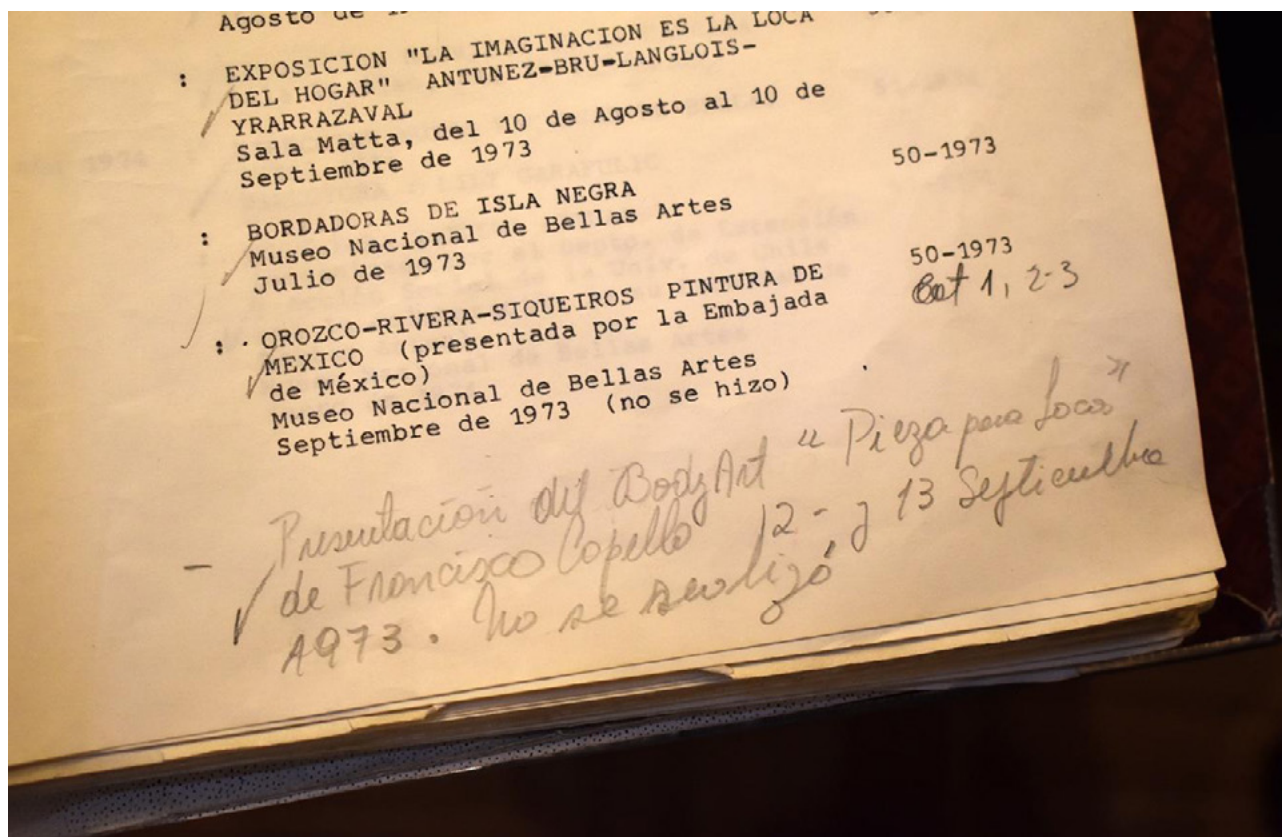 Agosto de
: EXPOSICION "LA IMAGINACION ES LA LOCA
DEL HOGAR" ANTUNEZ-BRU-LANGLOIS-
YRARRAZAVAL
Sala Matta, del 10 de Agosto al 10 de
Septiembre de 1973
: BORDADORAS DE ISLA NEGRA 50-1973
Museo Nacional de Bellas Artes
Julio de 1973
: OROZCO-RIVERA-SIQUEIROS PINTURA DE 50-1973
MEXICO (presentada por la Embajada Cat 1, 2-3
de México)
Museo Nacional de Bellas Artes
Septiembre de 1973 (no se hizo)
- Presentación del BodyArt "Pieza para Locos"
de Francisco Copello 12- y 13 Septiembre
1973. No se realizó